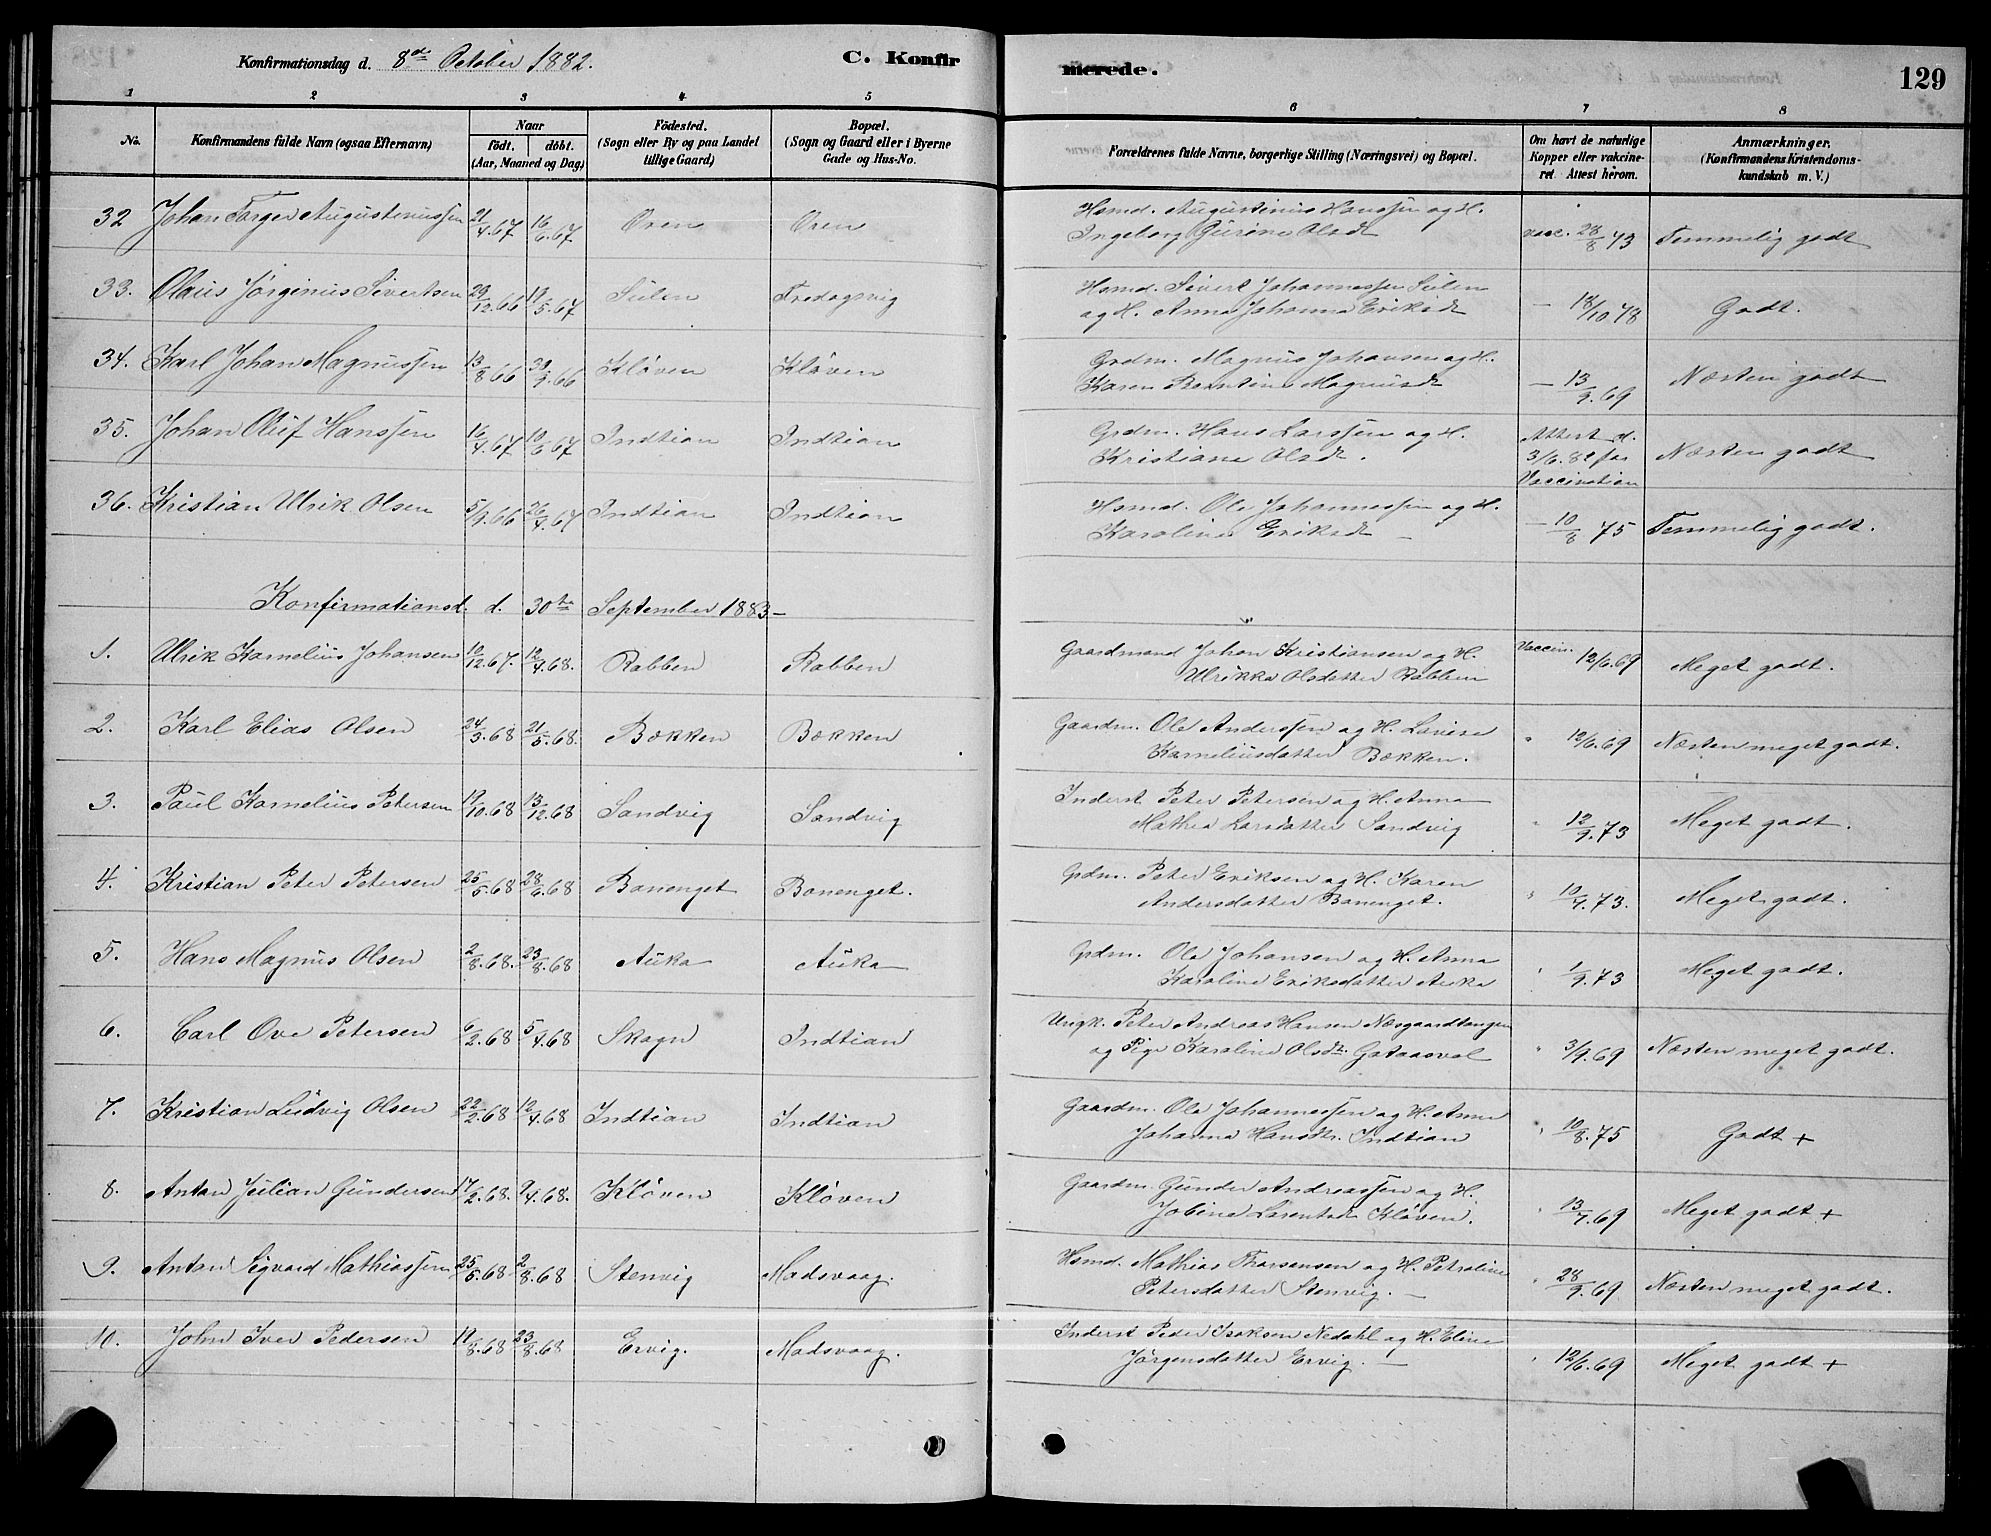 Konfirmationsdag d. 8de October 1882. C. Konfirmerede. 129
1 2 3 4 5 6 7 8
No. Konfirmandens fulde Navn (ogsaa Efternavn) Naar født. døbt. (Aar, Maaned og Dag) Fødested. (Sogn eller By og paa Landet tillige Gaard) Bopæl. (Sogn og Gaard eller i Byerne Gade og Hus-No. Forældrenes fulde Navne, borgerlige Stilling (Næringsvei) og Bopæl. Om havt de naturlige Kopper eller vakcineret. Attest herom. Anmærkninger. (Konfirmandens Kristendomskundskab m. V.)
32 Johan Torger Augustinussen 21/4.67 16/6.67 Øren Øren Hsmd. Augustinus Hanssen og H. vacc. 28/8 73 Temmelig godt
Ingeborg Gurine Olsdt
33. Olaus Jørginus Sivertsen 29/12.66 19/5.67 Silen Fredagsvig Hsmd. Sivert Johannessen Silen — 18/10 78 Godt.
og H. Anna Johanna Eriksdt
34. Karl Johan Magnussen 13/8 66 30/9.66 Kløven Kløven Grdm. Magnus Johansen og H. — 13/9.69 Næsten godt
Karen Berntine Magnusdt
35. Johan Oluf Hanssen 16/4.67 10/6 67 Indtian Indtian Grdm. Hans Larssen og H. Attest d. 3/6.82 for Vaccination Næsten godt
Kristiane Olsdt.
36. Kristian Ulrik Olsen 5/9.66 26/4.67 Indtian Indtian Hsmd. Ole Johannessen og H. — 10/8 75 Temmelig godt.
Karoline Eriksdt —
Konfirmationsd. d. 30te September 1883—
1. Ulrik Kornelius Johansen 10/12.67. 12/4.68. Rabben Rabben Gaardmand Johan Kristiansen og H. Vaccin. 12/6.69 Meget godt.
Ulrikka Olsdatter Rabben
2. Karl Elias Olsen 24/3.68 21/5.68. Bækken Bækken Gaardm. Ole Anderssen og H. Lovise " 12/6.69 Næsten meget godt.
Korneliusdatter Bækken.
3. Paul Kornelius Petersen 19/10.68 13/12.68 Sandvig Sandvig Inderst Peter Petersen og H. Anna " 12/9.73 Meget godt.
Mathea Larsdatter Sandvig
4. Kristian Peter Petersen 25/5.68 28/6.68 Bonenget Bonenget. Grdm. Peter Eriksen og H. Karen " 10/9.73. Meget godt.
Andersdatter Bonenget.
5. Hans Magnus Olsen 2/8.68. 23/8.68 Auka Auka Grdm. Ole Johansen og H. Anna " 1/9.73 Meget godt.
Karoline Eriksdatter Auka
6. Carl Ove Petersen 6/2.68 5/4.68 Skogn Indtian Ungk. Peter Andreas Hansen Næsgaardtangen " 3/9.69 Næsten meget godt.
og Pige Karoline Olsdt.
7. Kristian Ludvig Olsen 22/2.68 12/4.68 Indtian Indtian Gaardm. Ole Johannessen og H. Anne " 10/8.75 Godt +
Johanna Hansdtr. Indtian
8. Anton Julian Gundersen 17/2.68. 9/4.68. Kløven Kløven Gaardm. Gunder Andreassen og H. " 13/9.69 Meget godt +
Jobine Kløven.
9. Anton Sigvard Mathiassen 25/5.68 2/8.68 Stenvig Madsvaag. Hsmd. Mathias Thorsensen og H. Petroline " 28/9.69 Næsten meget godt.
Petersdatter Stenvig. —
10. John Iver Pedersen 11/8.68 23/8.68 Ervig. Madsvaag. Inderst Peder Isaksen Nedahl og H. Eline " 12/6.69 Meget godt +
Jørgensdatter Ervig. —